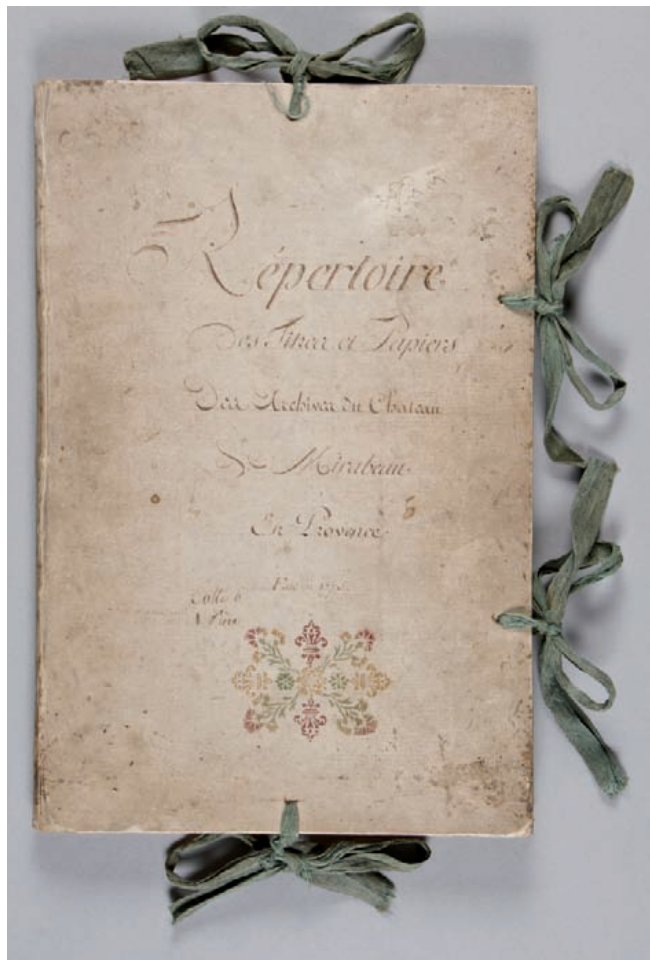 Répertoire
Des Titres et Papiers
Des Archives du Chateau
De Mirabeau
En Provence
Cotte 6